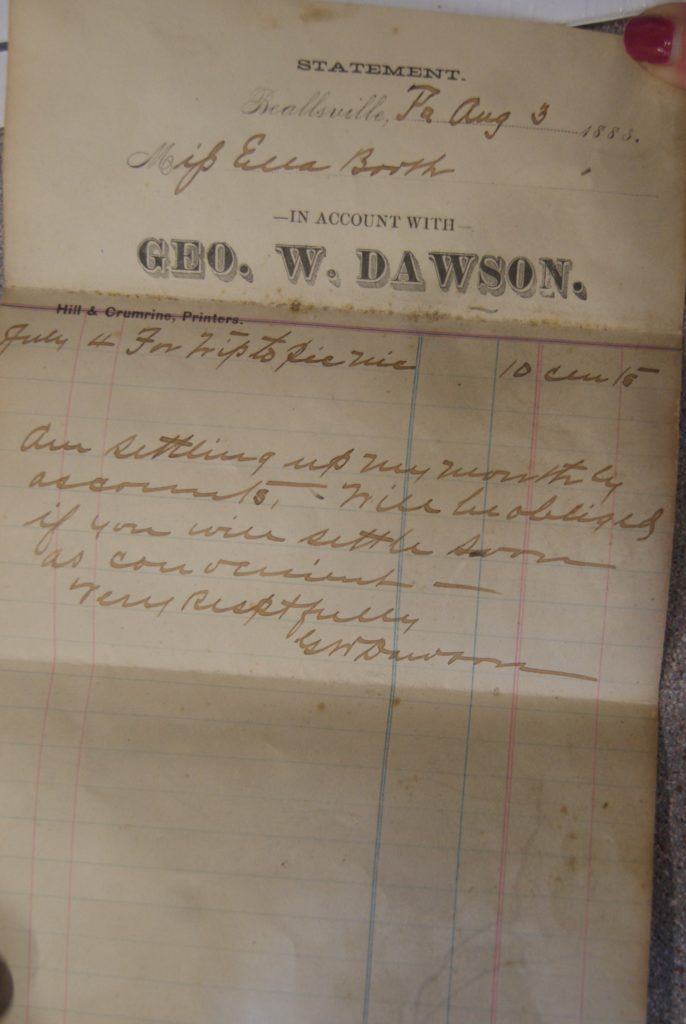 STATEMENT.
Beallsville, Pa Aug 3 1883.
Miss Ella Booth
—IN ACCOUNT WITH—
GEO. W. DAWSON.
Hill & Crumrine, Printers.
July 4 For trip to pic nic 10 cents
Am settling up my monthly
accounts, - Will be obliged
if you will settle soon
as convenient —
Very Resptfully
GW Dawson